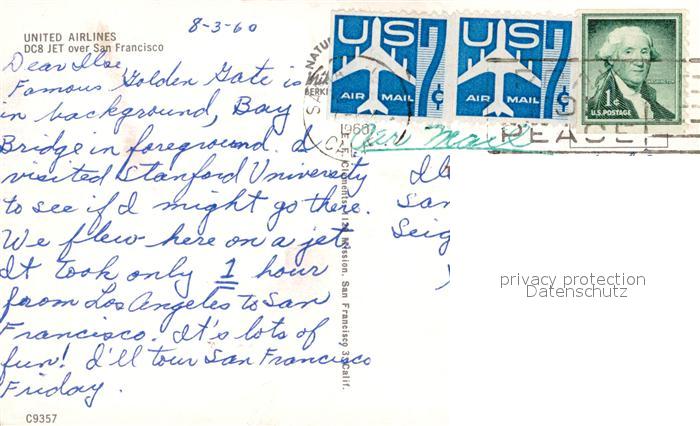 8-3-60
UNITED AIRLINES
DC8 JET over San Francisco
Dear Ilse,
Famous Golden Gate is
in background, Bay
Bridge in foreground. I
visited Stanford University
to see if I might go there.
We flew here on a jet.
It took only 1 hour
from Los Angeles to San
Francisco. It's lots of
fun! I'll tour San Francisco
Friday.
C9357
Clements, 1124 Mission, San Francisco 3, Calif.
US
7¢
AIR MAIL
US
7¢
AIR MAIL
WASHINGTON
1¢
U.S. POSTAGE
1960
PEACE!
Air Mail
Il
San
Seig
privacy protection
Datenschutz